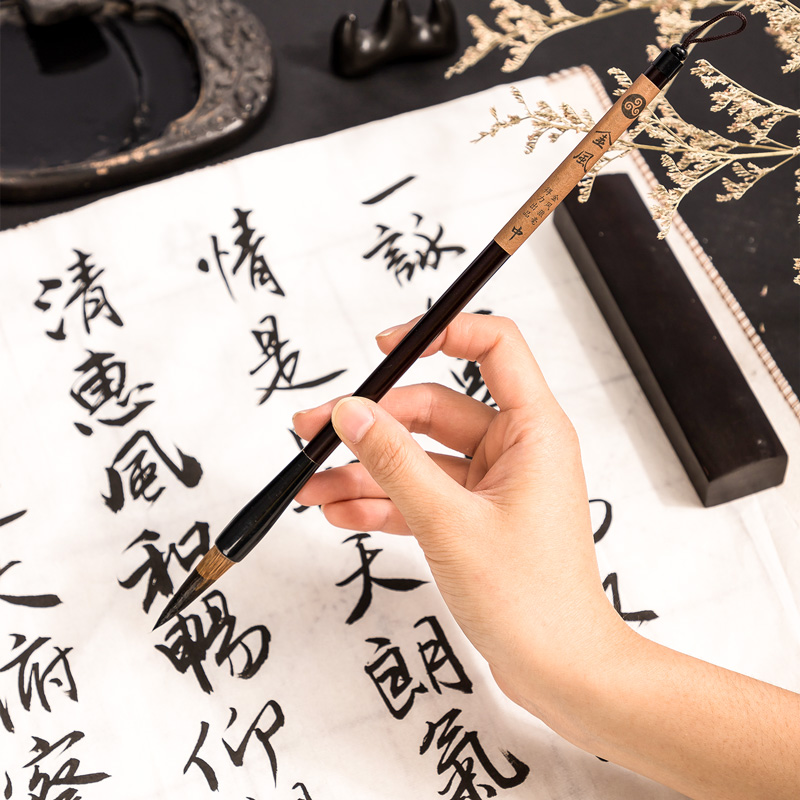 一詠
情是天朗氣
清惠風和暢仰
俯察
金風
得力出品
中